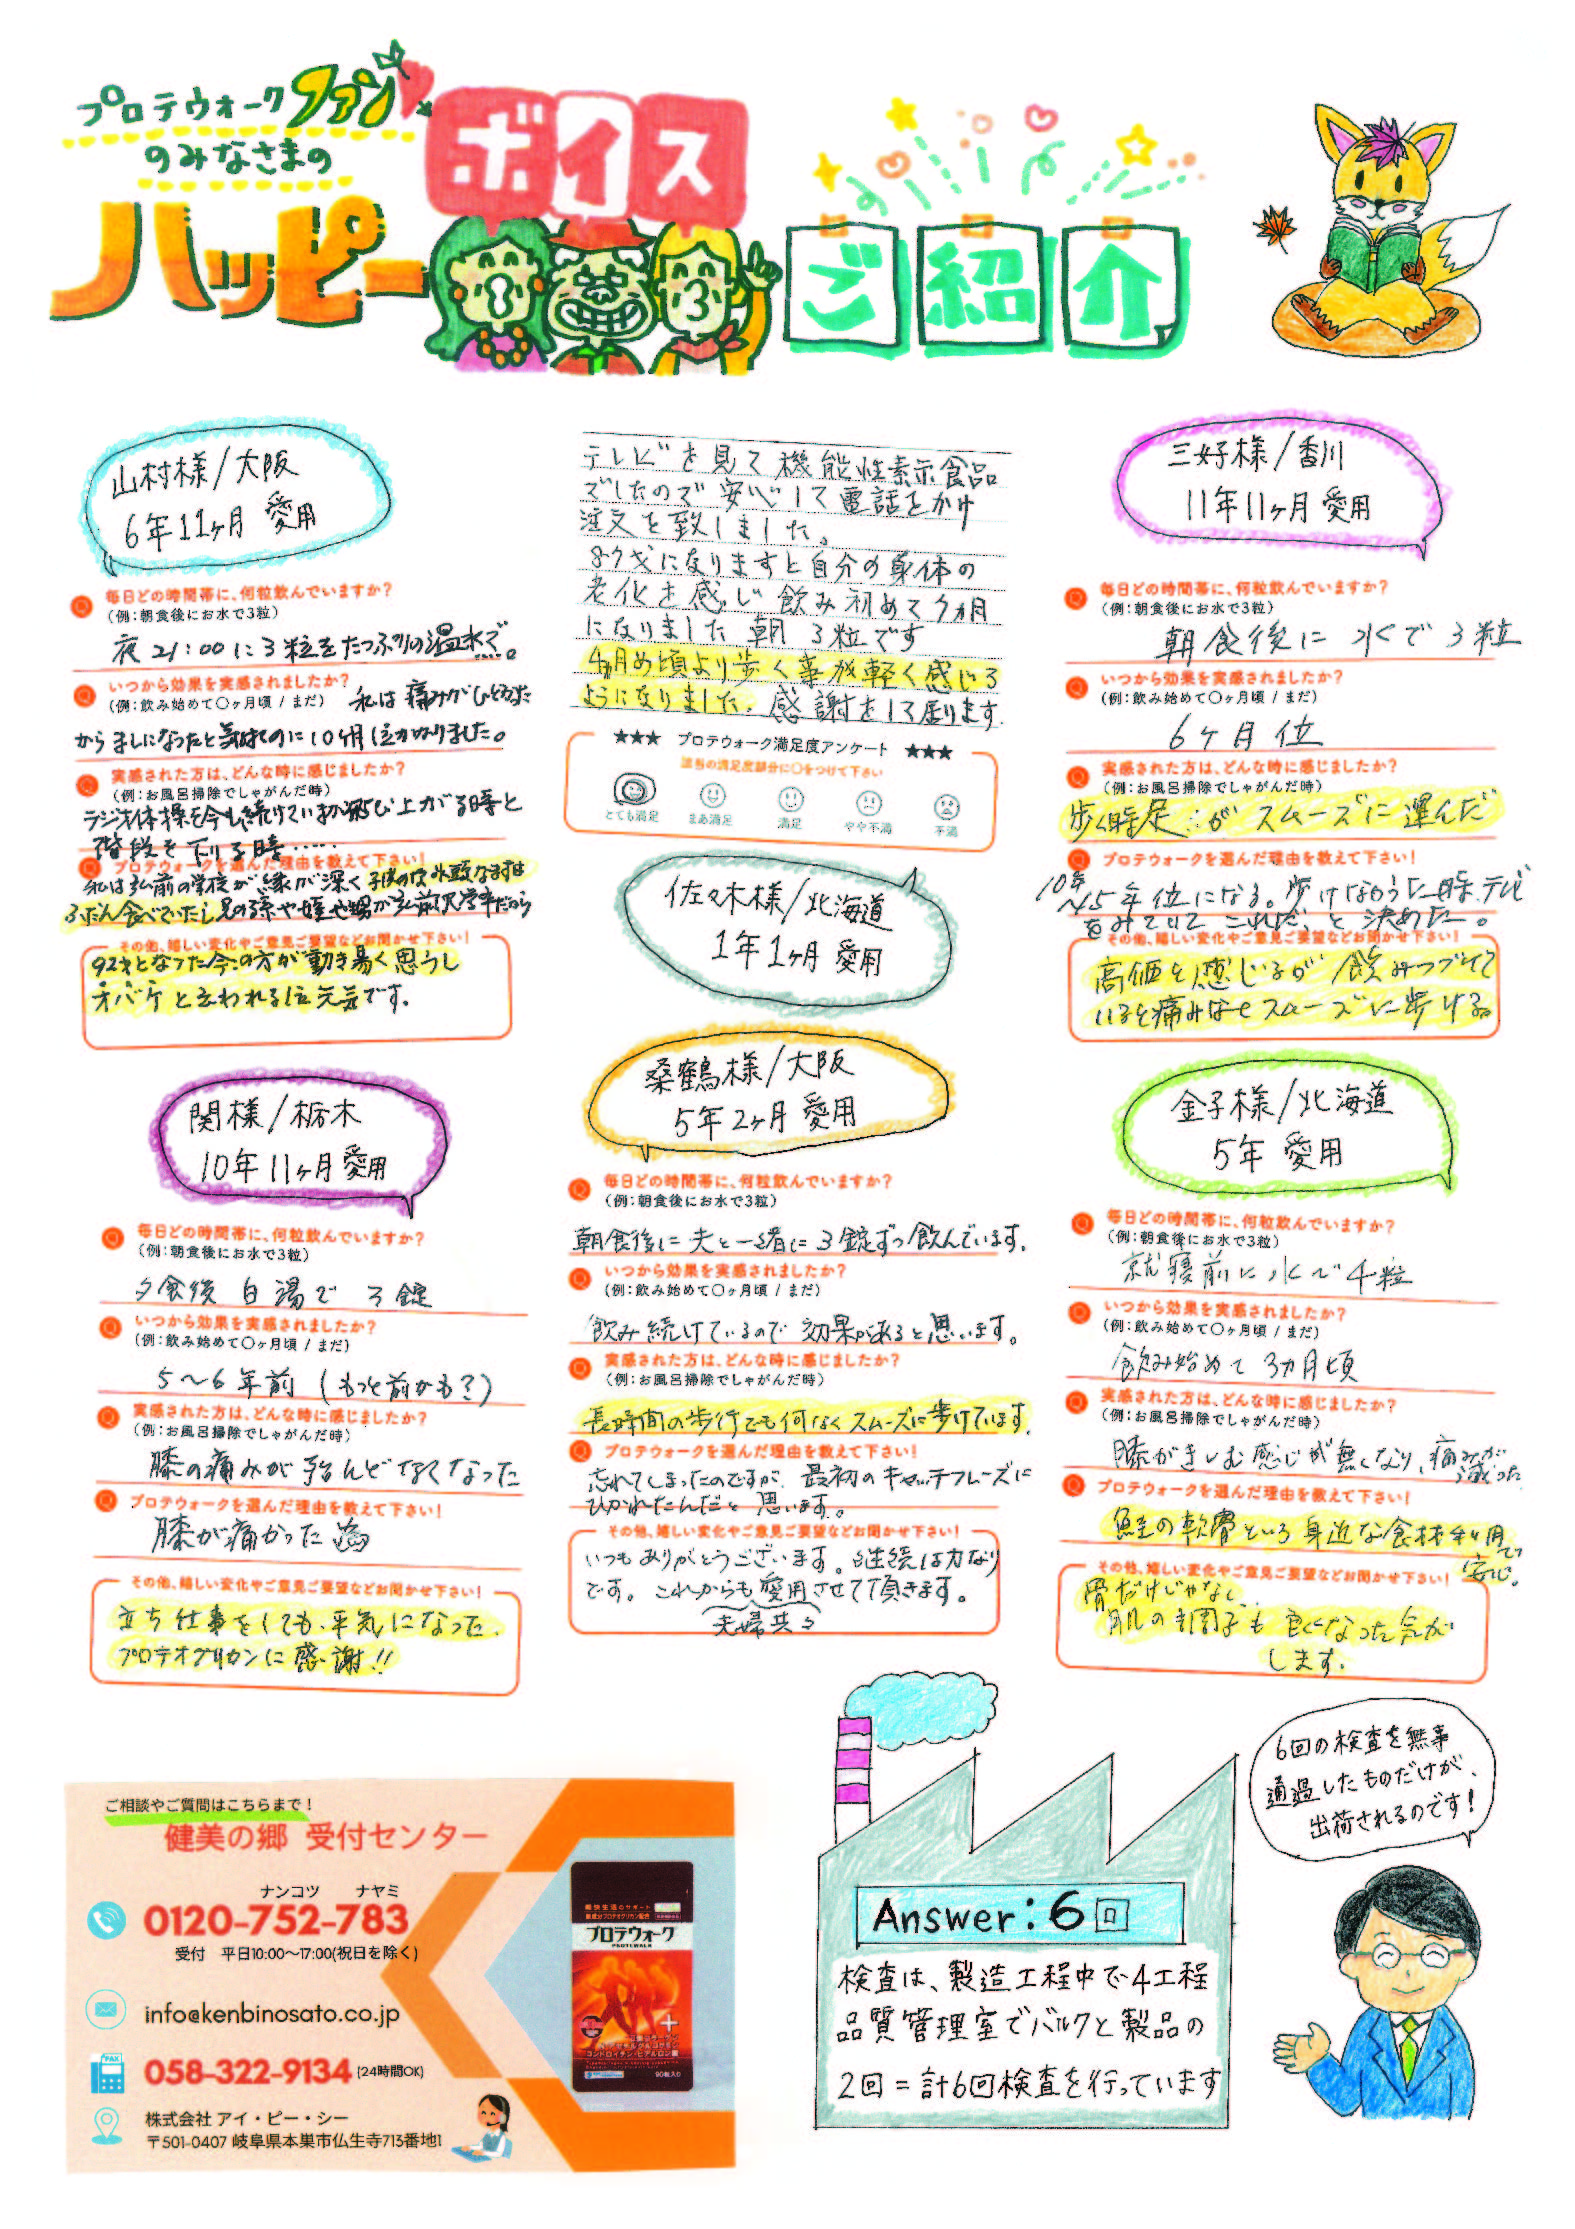 プロテウォークファン
のみなさまの
ハッピー
ボイス
ご紹介
山村様/大阪
6年11ヶ月 愛用
Q 毎日どの時間帯に、何粒飲んでいますか?
(例:朝食後にお水で3粒)
夜21:00に3粒をたっぷりの温水で。
Q いつから効果を実感されましたか?
(例:飲み始めて〇ヶ月頃 / まだ) 私は痛みがひどかった
からましになったと気付くのに10ヶ月位かかりました。
Q 実感された方は、どんな時に感じましたか?
(例:お風呂掃除でしゃがんだ時)
ラジオ体操を今も続けていますが飛び上がる時と
階段を下りる時……
Q プロテウォークを選んだ理由を教えて下さい!
私は弘前の学校が縁が深く子供の
ふだん食べていたし兄の孫や姪や甥が弘前大学卒だから
その他、嬉しい変化やご意見ご要望などお聞かせ下さい!
92才となった今の方が動き易く思うし
オバケと云われる位元気です。
テレビを見て機能性表示食品
でしたので安心して電話をかけ
注文を致しました。
87才になりますと自分の身体の
老化を感じ飲み初めて9ヵ月
になりました 朝 3粒です
4ヶ月め頃より歩く事が軽く感じる
ようになりました。感謝をして居ります。
★★★ プロテウォーク満足度アンケート ★★★
該当の満足度部分に〇をつけて下さい
とても満足 まあ満足 満足 やや不満 不満
佐々木様/北海道
1年1ヶ月 愛用
三好様/香川
11年11ヶ月 愛用
Q 毎日どの時間帯に、何粒飲んでいますか?
(例:朝食後にお水で3粒)
朝食後に 水で3粒
Q いつから効果を実感されましたか?
(例:飲み始めて〇ヶ月頃 / まだ)
6ヶ月位
Q 実感された方は、どんな時に感じましたか?
(例:お風呂掃除でしゃがんだ時)
歩く時足がスムーズに運んだ
Q プロテウォークを選んだ理由を教えて下さい!
10年
~15年位になる。歩けなかった時テレビ
をみていて これだ、と 決めた。
その他、嬉しい変化やご意見ご要望などお聞かせ下さい!
高価を感じるが 飲みつづけて
いると痛みなくスムーズに歩ける。
関様/栃木
10年11ヶ月 愛用
Q 毎日どの時間帯に、何粒飲んでいますか?
(例:朝食後にお水で3粒)
夕食後 白湯で 3錠
Q いつから効果を実感されましたか?
(例:飲み始めて〇ヶ月頃 / まだ)
5~6年前(もっと前かも?)
Q 実感された方は、どんな時に感じましたか?
(例:お風呂掃除でしゃがんだ時)
膝の痛みが殆んどなくなった
Q プロテウォークを選んだ理由を教えて下さい!
膝が痛かった為
その他、嬉しい変化やご意見ご要望などお聞かせ下さい!
立ち仕事をしても、平気になった。
プロテオグリカンに感謝!!
桑鶴様/大阪
5年2ヶ月 愛用
Q 毎日どの時間帯に、何粒飲んでいますか?
(例:朝食後にお水で3粒)
朝食後に夫と一緒に3錠ずつ飲んでいます。
Q いつから効果を実感されましたか?
(例:飲み始めて〇ヶ月頃 / まだ)
飲み続けているので効果があると思います。
Q 実感された方は、どんな時に感じましたか?
(例:お風呂掃除でしゃがんだ時)
長時間の歩行でも何なくスムーズに歩けています。
Q プロテウォークを選んだ理由を教えて下さい!
忘れてしまったのですが、最初のキャッチフレーズに
ひかれたんだと思います。
その他、嬉しい変化やご意見ご要望などお聞かせ下さい!
いつもありがとうございます。継続は力なり
です。これからも愛用させて頂きます。
夫婦共々
金子様/北海道
5年 愛用
Q 毎日どの時間帯に、何粒飲んでいますか?
(例:朝食後にお水で3粒)
就寝前に水で4粒
Q いつから効果を実感されましたか?
(例:飲み始めて〇ヶ月頃 / まだ)
飲み始めて 3カ月頃
Q 実感された方は、どんな時に感じましたか?
(例:お風呂掃除でしゃがんだ時)
膝がきしむ感じが無くなり、痛みが
減った
Q プロテウォークを選んだ理由を教えて下さい!
鮭の軟骨という身近な食材利用
で安心。
その他、嬉しい変化やご意見ご要望などお聞かせ下さい!
骨だけじゃなく、
肌の調子も良くなった気が
します。
ご相談やご質問はこちらまで!
健美の郷 受付センター
ナンコツ ナヤミ
0120-752-783
受付 平日10:00~17:00(祝日を除く)
info@kenbinosato.co.jp
FAX
058-322-9134 (24時間OK)
株式会社 アイ・ピー・シー
〒501-0407 岐阜県本巣市仏生寺713番地1
プロテウォーク
PROTEWALK
90粒入り
6回の検査を無事
通過したものだけが、
出荷されるのです!
Answer:6回
検査は、製造工程中で4工程
品質管理室でバルクと製品の
2回=計6回検査を行っています